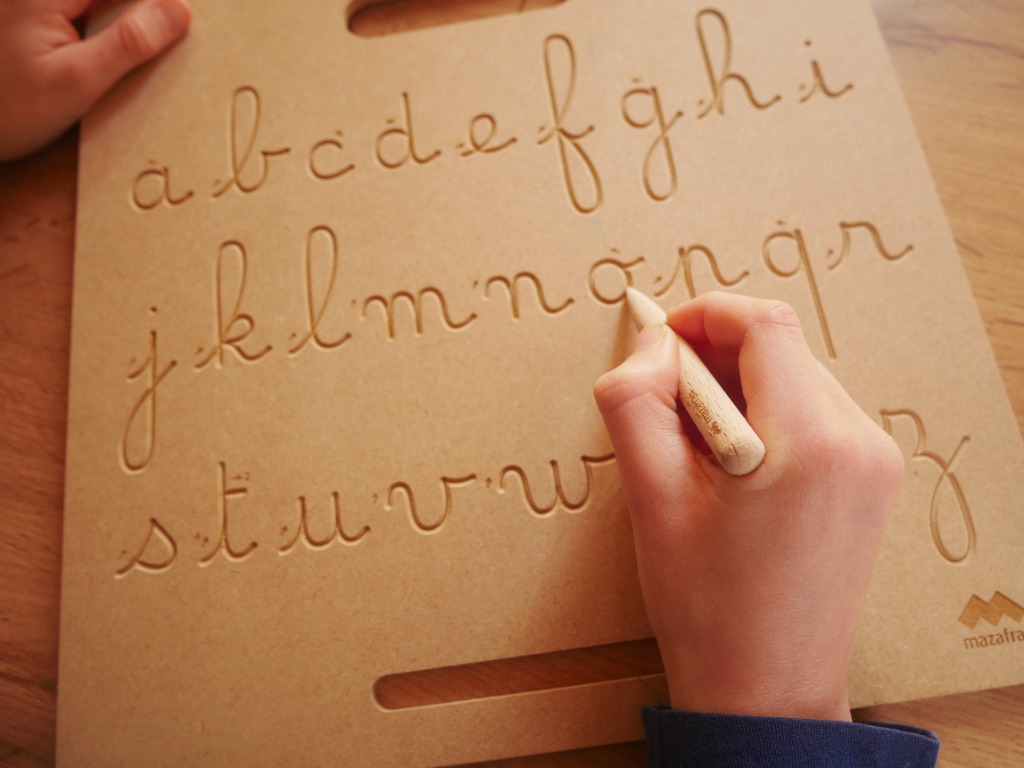 a b c d e f g h i
j k l m n o p q r
s t u v w z
mazafra